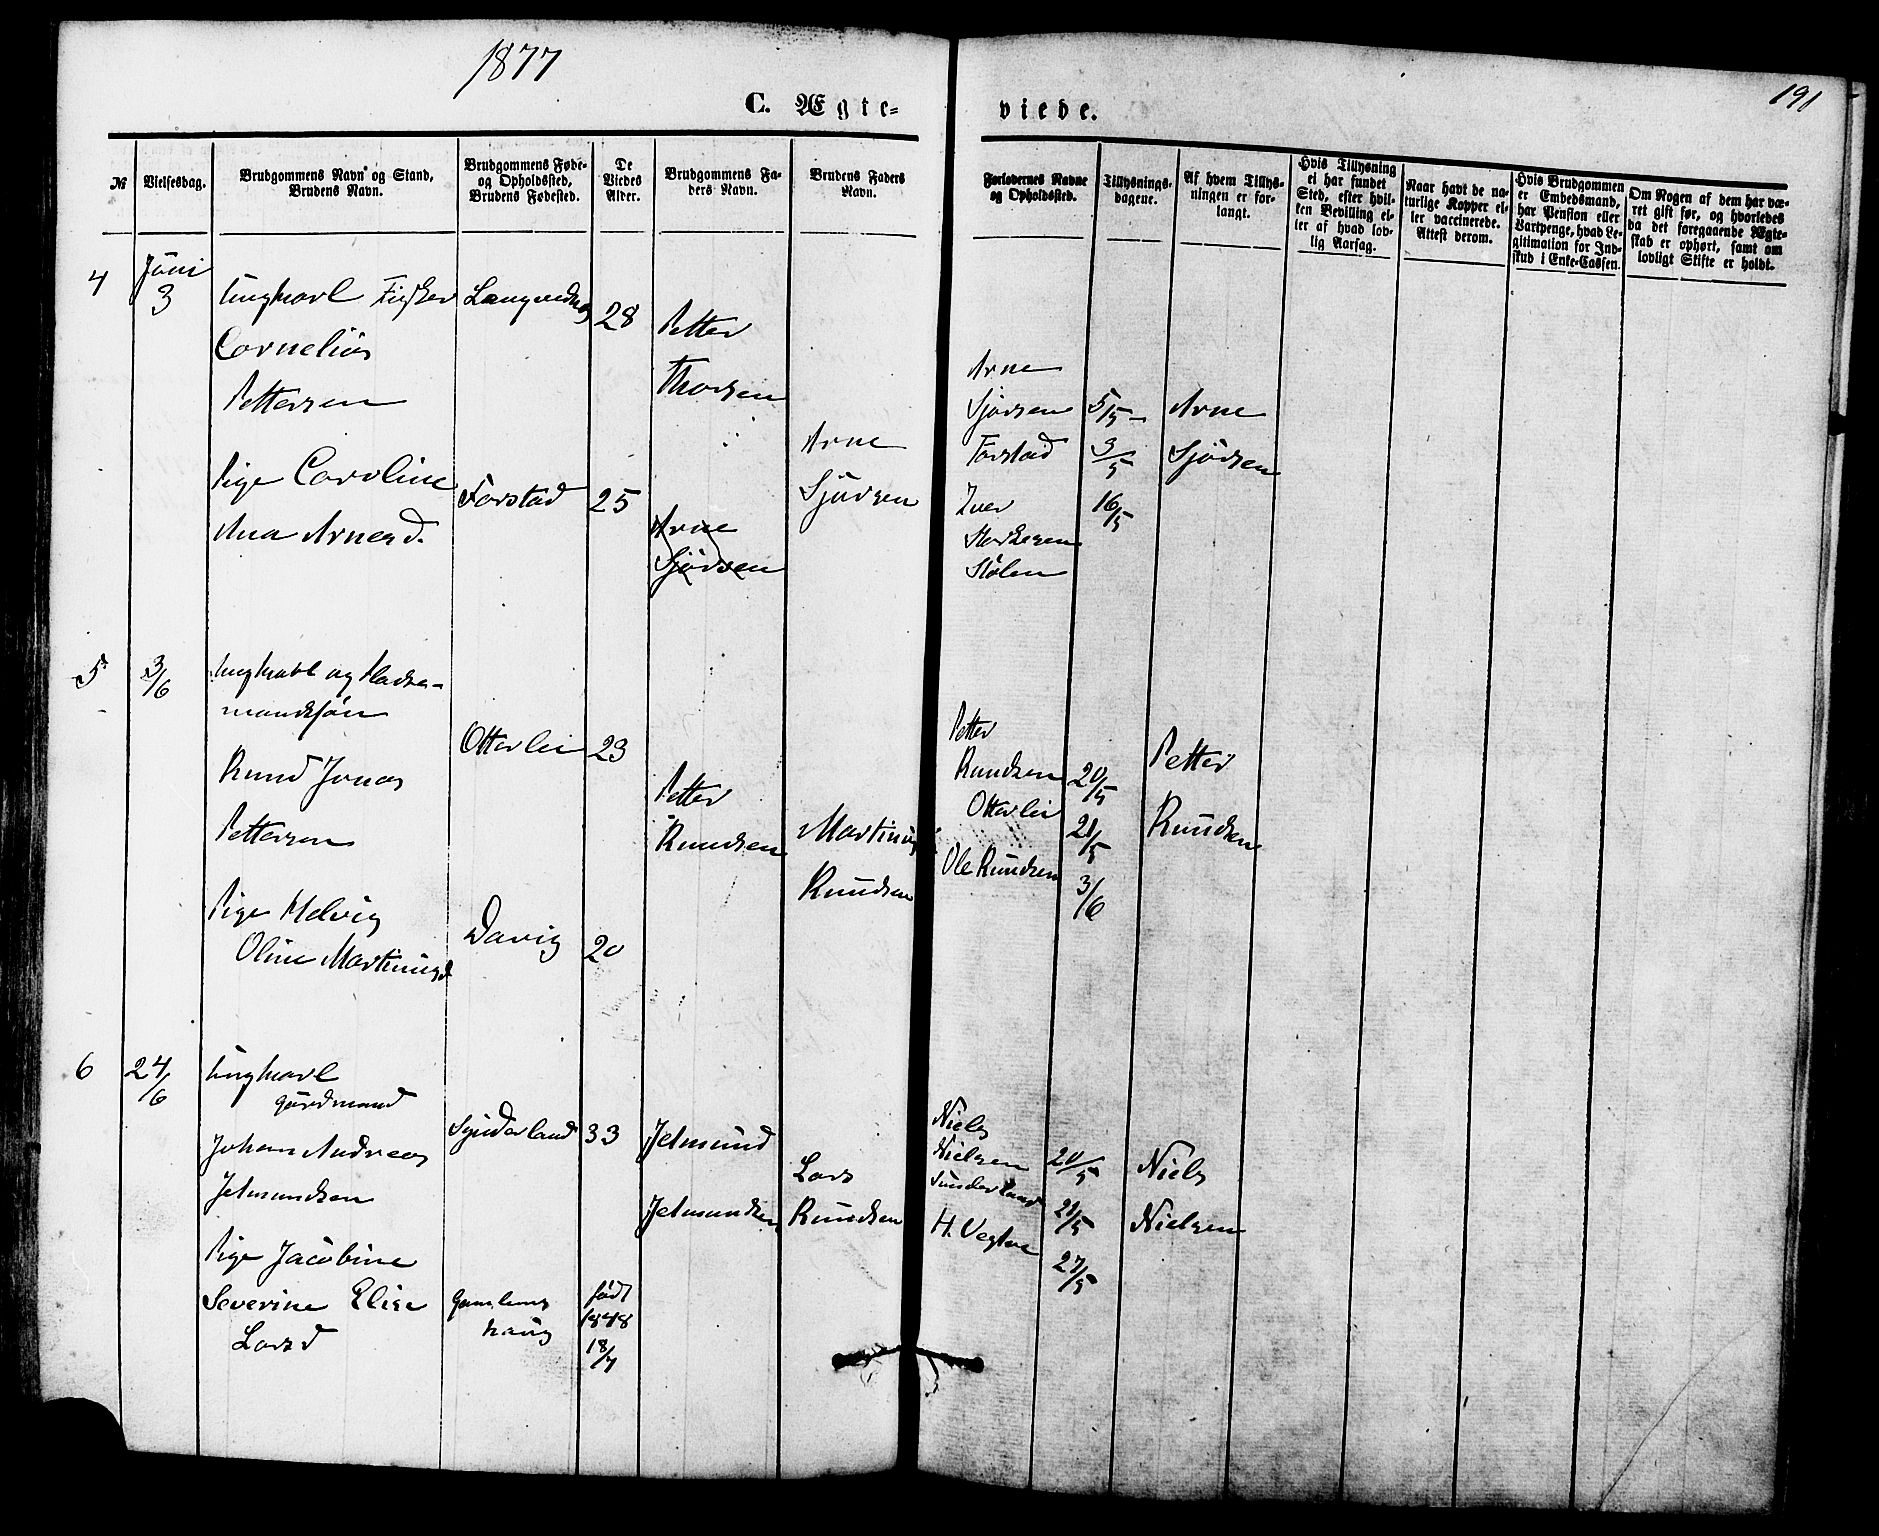 1877
191
C. Ægte-
viede.
№
Vielsesdag.
Brudgommens Navn og Stand,
Brudens Navn.
Brudgommens Føde-
og Opholdssted,
Brudens Fødested.
De
Viedes
Alder.
Brudgommens Fa-
ders Navn.
Brudens Faders
Navn.
Forlovernes Navne
og Opholdssted.
Tillysnings-
dagene.
Af hvem Tillys-
ningen er for-
langt.
Hvis Tillysning
ei har fundet
Sted, efter hvil-
ken Bevilling el-
ler af hvad lov-
lig Aarsag.
Naar havt de na-
turlige Kopper el-
ler vaccinerede.
Attest derom.
Hvis Brudgommen
er Embedsmand,
har Pension eller
Vartpenge, hvad Le-
gitimation for Ind-
skud i Enke-Cassen.
Om Nogen af dem har væ-
ret gift før, og hvorledes
da det foregaaende Ægte-
skab er ophørt, samt om
lovligt Skifte er holdt.
4
Juni
3
Ungkarl Fisker
Cornelius
Pettersen
28
Petter
Thorsen
Pige Caroline
Ana Arnesd.
Forstad
25
Arne
Sjursen
Arne
Sjursen
Arne
Sjursen
Forstad
Iver
Sterkesen
Stølen
5/5
3/5
16/5
Arne
Sjursen
5
3/6
Ungkarl og
mandssøn
Knud Jonas
Pettersen
Otterlei
23
Petter
Knudsen
Pige Helvig
Oline Martinusd
Davig
20
Martinus
Knudsen
Petter
Knudsen
Otterlei
Ole Knudsen
20/5
21/5
3/6
Petter
Knudsen
6
24/6
Ungkarl
gårdmand
Johan Andreas
Jetmundsen
Synderland
33
Jetmund
Jetmundsen
Pige Jacobine
Severine Elise
Larsd
haug
født
1848
18/7
Lars
Knudsen
Niels
Nielsen
Sunderland
H. Vegtne
20/5
21/5
27/5
Niels
Nielsen